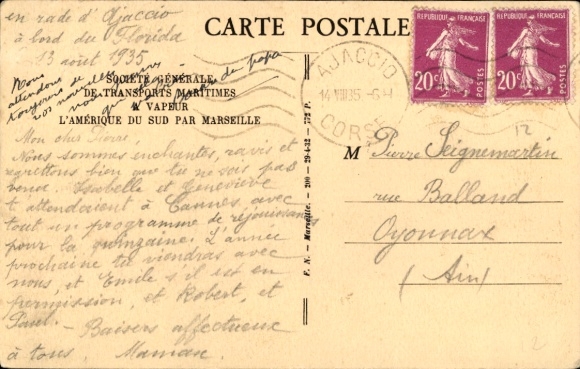 en rade d'Ajaccio
à bord du Florida
13 août 1935
CARTE POSTALE
Nous
attendons
nouvelles
papa
SOCIÉTÉ GÉNÉRALE
DE TRANSPORTS MARITIMES
A VAPEUR
L'AMÉRIQUE DU SUD PAR MARSEILLE
Mon cher Pierre,
Nous sommes enchantés, ravis et
regrettons bien que tu ne sois pas
venu. Isabelle et Geneviève
t'attendaient à Cannes, avec
tout un programme de réjouissances
pour la quinzaine. L'année
prochaine tu viendras avec
nous, et Emile s'il est en
permission, et Robert, et
Paul. - Baisers affectueux
à tous. Maman.
F. N. - Marseille. - 200 - 29-4-32 - 172 P.
AJACCIO
14 VIII 35
CORSE
REPUBLIQUE FRANÇAISE
20c
POSTES
REPUBLIQUE FRANÇAISE
20c
POSTES
12
M Pierre Seignemartin
rue Balland
Oyonnax
(Ain)
2